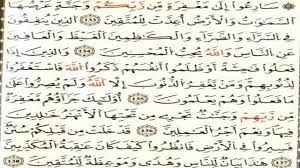 ۞ سَارِعُوا إِلَىٰ مَغْفِرَةٍ مِن رَّبِّكُمْ وَجَنَّةٍ عَرْضُهَا
السَّمَٰوَٰتُ وَالْأَرْضُ أُعِدَّتْ لِلْمُتَّقِينَ ١٣٣ الَّذِينَ يُنفِقُونَ
فِي السَّرَّاءِ وَالضَّرَّاءِ وَالْكَٰظِمِينَ الْغَيْظَ وَالْعَافِينَ
عَنِ النَّاسِ وَاللَّهُ يُحِبُّ الْمُحْسِنِينَ ١٣٤ وَالَّذِينَ إِذَا
فَعَلُوا فَٰحِشَةً أَوْ ظَلَمُوا أَنفُسَهُمْ ذَكَرُوا اللَّهَ فَاسْتَغْفَرُوا
لِذُنُوبِهِمْ وَمَن يَغْفِرُ الذُّنُوبَ إِلَّا اللَّهُ وَلَمْ يُصِرُّوا عَلَىٰ
مَا فَعَلُوا وَهُمْ يَعْلَمُونَ ١٣٥ أُولَٰئِكَ جَزَاؤُهُم مَّغْفِرَةٌ
مِّن رَّبِّهِمْ وَجَنَّٰتٌ تَجْرِي مِن تَحْتِهَا الْأَنْهَٰرُ خَٰلِدِينَ
فِيهَا وَنِعْمَ أَجْرُ الْعَٰمِلِينَ ١٣٦ قَدْ خَلَتْ مِن قَبْلِكُمْ سُنَنٌ
فَسِيرُوا فِي الْأَرْضِ فَانظُرُوا كَيْفَ كَانَ عَٰقِبَةُ الْمُكَذِّبِينَ
١٣٧ هَٰذَا بَيَانٌ لِّلنَّاسِ وَهُدًى وَمَوْعِظَةٌ لِّلْمُتَّقِينَ ١٣٨